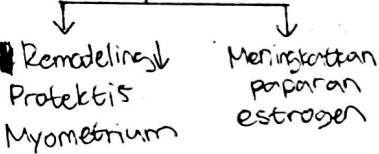 Remodeling↓
Protektif
Myometrium
Meningkatkan
paparan
estrogen